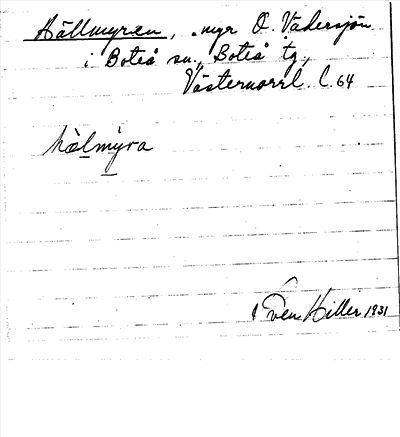 Hällmyren, myr O. Vädersjön
i Boteå sn., Boteå tg.,
Västernorrl. l. 64
hälmyra
Sven Hiller 1931